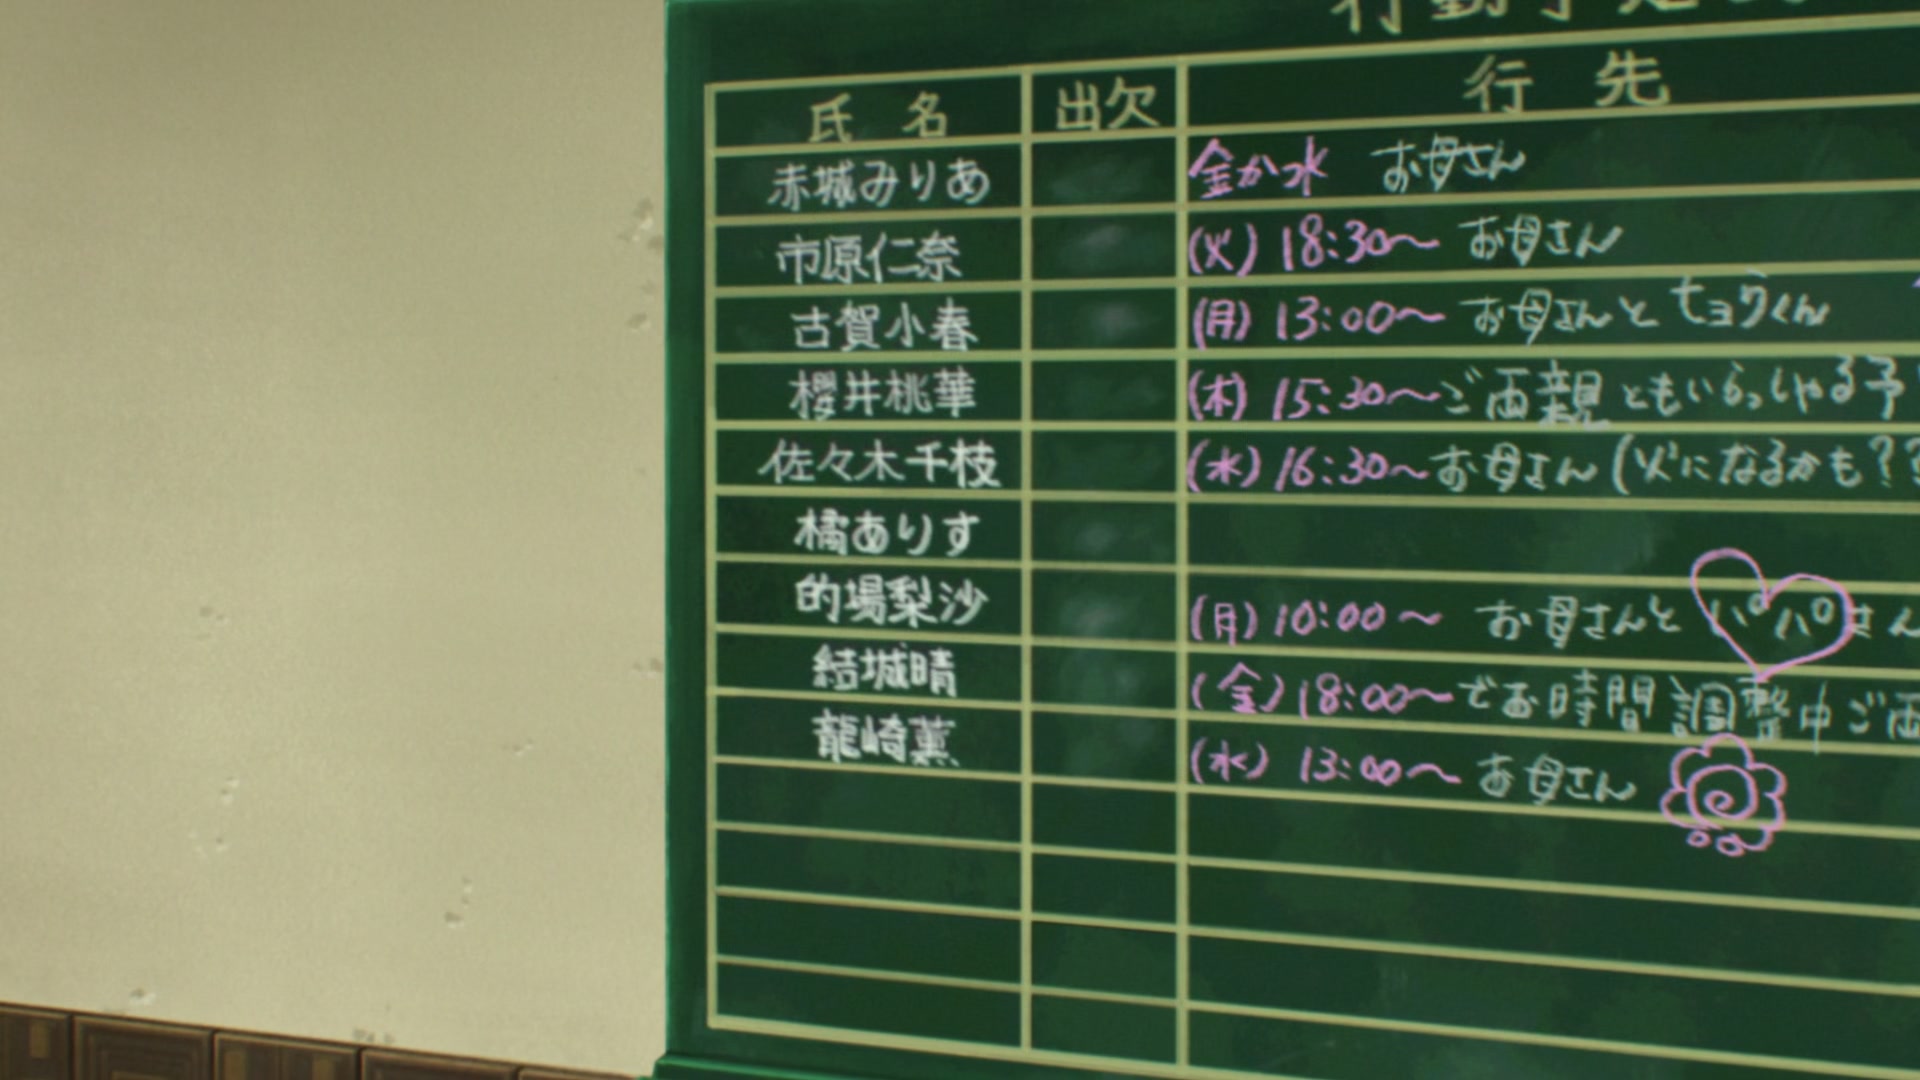 行動予定
氏名 出欠 行先
赤城みりあ 金か水 お母さん
市原仁奈 (火) 18:30〜 お母さん
古賀小春 (月) 13:00〜 お母さんとヒョウくん
櫻井桃華 (木) 15:30〜ご両親ともいらっしゃる予
佐々木千枝 (水) 16:30〜お母さん(火になるかも??
橘ありす
的場梨沙 (月) 10:00〜 お母さんとパパさん
結城晴 (金) 18:00〜でお時間調整中ご両
龍崎薫 (水) 13:00〜 お母さん